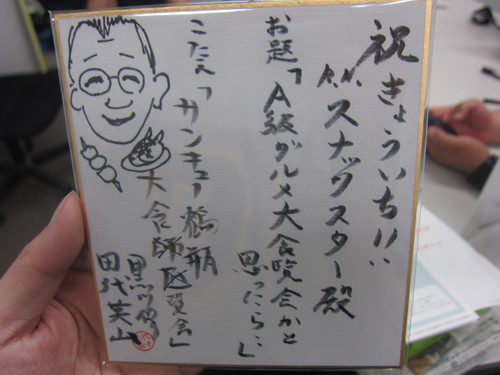 祝きょういち!!
R.N.スナックスター殿
お題「A級グルメ大食覧会かと
思ったら…」
こたえ「サンキュー橋爪
大食師匠覧会」
田代英山